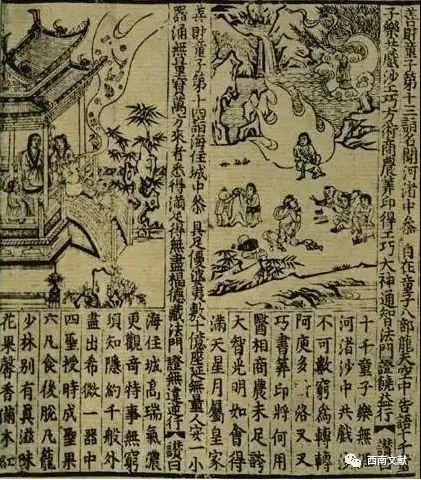 善財童子第十三詣名聞河渚中叅自在童子八部龍天空中告語十千童
子樂共戲沙工巧方術商農筭印得工巧大神通知智法門證饒益行 讃曰
十千童子樂無
河渚沙中共戲
不可數窮爲轉轉
阿庾多 洛叉叉
巧書筭印將何用
醫相商農未足誇
大智光明如會得
滿天星月屬皇家
善財童子第十四詣海住城中叅具足優婆夷數十億座延無量人安一小
器滿無量寶萬方來者悉得滿足得無盡福德藏法門證無違逆行 讃曰
海住城高瑞氣濃
更觀奇特事無窮
須知隱約千般外
盡出希微一器中
四聖授時成聖果
六凡食後脫凡籠
少林別有真滋味
花果馨香備本紅
西南文献